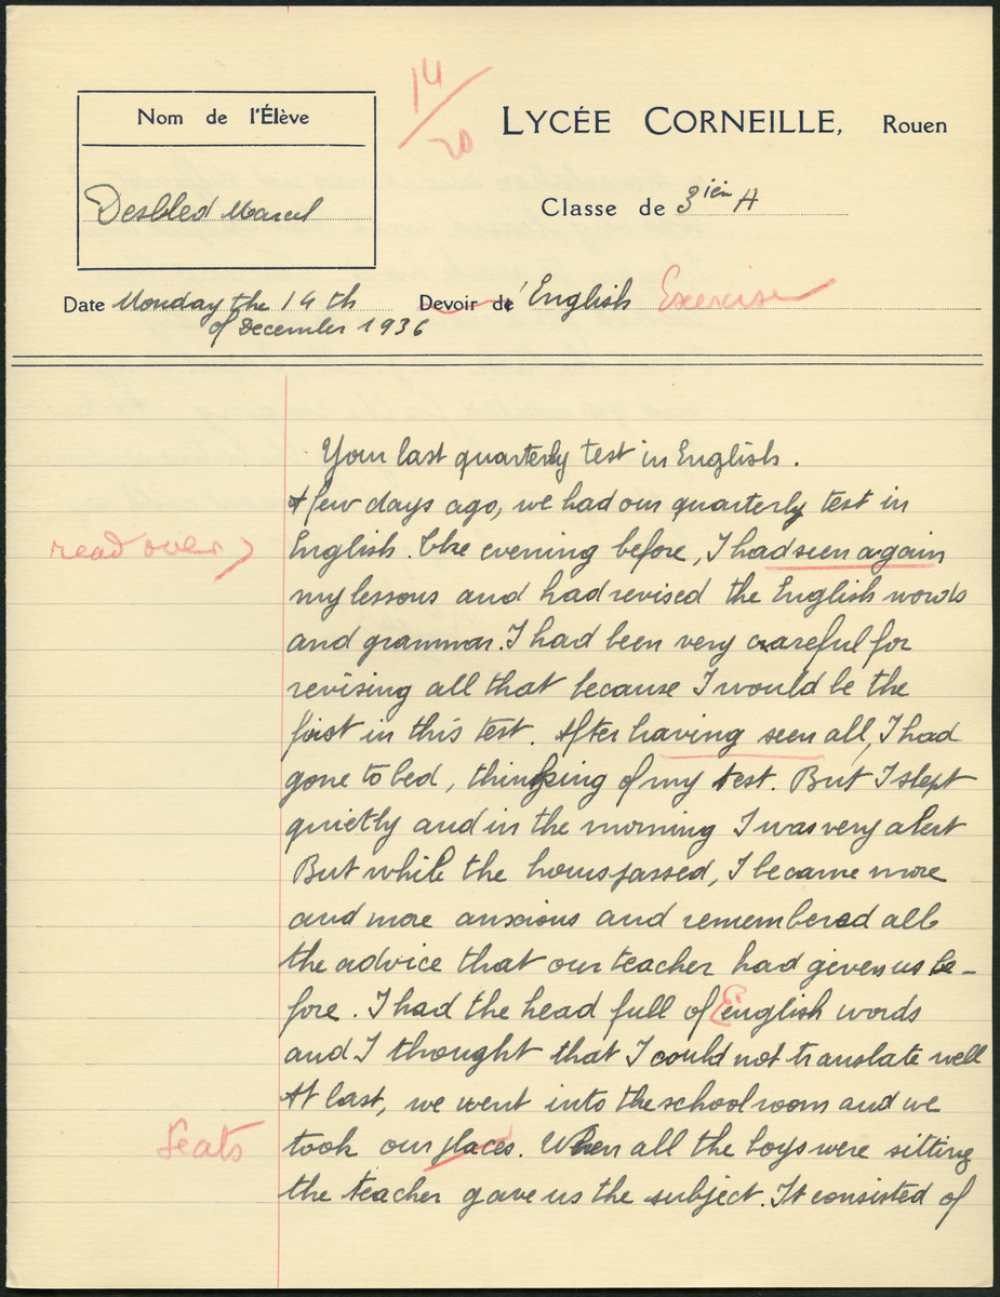 14/20
Nom de l'Élève
LYCÉE CORNEILLE, Rouen
Desbled Marcel
Classe de 3ièm A
Date Monday the 14 th
of December 1936
Devoir de English Exercise
Your last quarterly test in English.
A few days ago, we had our quarterly test in
read over
English. The evening before, I had seen again
my lessons and had revised the English words
and grammar. I had been very careful for
revising all that because I would be the
first in this test. After having seen all, I had
gone to bed, thinking of my test. But I slept
quietly and in the morning I was very alert
But while the hours passed, I became more
and more anxious and remembered all
the advice that our teacher had given us be-
fore. I had the head full of English words
and I thought that I could not translate well
At last, we went into the schoolroom and we
seats
took our places. When all the boys were sitting
the teacher gave us the subject. It consisted of